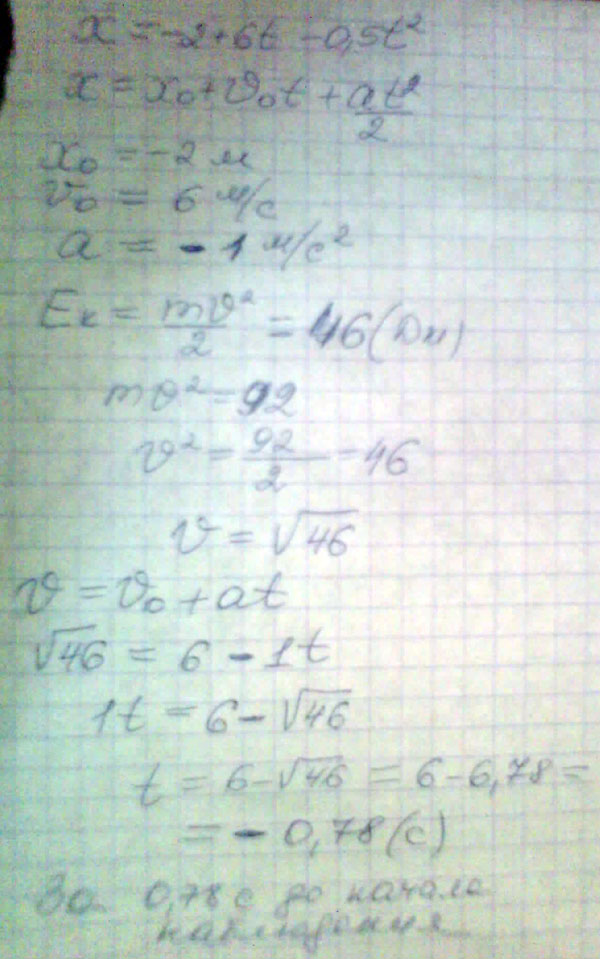 x = -2 + 6t - 0,5t²
x = x₀ + v₀t + at²/2
x₀ = -2 м
v₀ = 6 м/с
a = -1 м/с²
Eк = mv²/2 = 46 (Дж)
mv² = 92
v² = 92/2 = 46
v = √46
v = v₀ + at
√46 = 6 - 1t
1t = 6 - √46
t = 6 - √46 = 6 - 6,78 =
= -0,78 (с)
За 0,78 с до начала
наблюдения